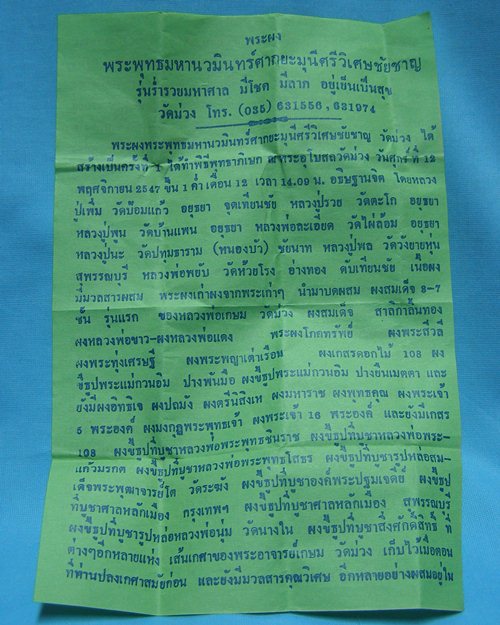 พระผง
พระพุทธมหานวมินทร์ศากยะมุนีศรีวิเศษชัยชาญ
รุ่นร่ำรวยมหาศาล มีโชค มีลาภ อยู่เย็นเป็นสุข
วัดม่วง โทร. (035) 631556, 631974
พระผงพระพุทธมหานวมินทร์ศากยะมุนีศรีวิเศษชัยชาญ วัดม่วง ได้
สร้างเป็นครั้งที่ 1 ได้ทำพิธีพุทธาภิเษก ณ พระอุโบสถวัดม่วง วันศุกร์ที่ 12
พฤศจิกายน 2547 ขึ้น 1 ค่ำ เดือน 12 เวลา 14.09 น. อธิษฐานจิต โดยหลวง
ปู่เพิ่ม วัดป้อมแก้ว อยุธยา จุดเทียนชัย หลวงปู่รวย วัดตะโก อยุธยา
หลวงปู่พูน วัดบ้านแพน อยุธยา หลวงพ่อละเอียด วัดไผ่ล้อม อยุธยา
หลวงปู่นะ วัดปทุมธาราม (หนองบัว) ชัยนาท หลวงปู่พล วัดวังยายหุ่น
สุพรรณบุรี หลวงพ่อพยับ วัดห้วยโรง อ่างทอง ดับเทียนชัย เนื้อผง
มีมวลสารผสม พระผงเก่าผงจากพระเก่าๆ นำมาบดผสม ผงสมเด็จ 3-7
ชั้น รุ่นแรก ของหลวงพ่อเกษม วัดม่วง ผงสมเด็จ สาลิกาลิ้นทอง
ผงหลวงพ่อขาว-ผงหลวงพ่อแดง พระผงโภคทรัพย์ ผงพระสีวลี
ผงพระทุ่งเศรษฐี ผงพระพญาเต่าเรือน ผงเกสรดอกไม้ 108 ผง
ขี้ธูปพระแม่กวนอิม ปางพันมือ ผงขี้ธูปพระแม่กวนอิม ปางยืนเมตตา และ
ยังมีผงอิทธิเจ ผงปถมัง ผงตรีนิสิงเห ผงมหาราช ผงพุทธคุณ ผงพระเจ้า
5 พระองค์ ผงมงกุฎพระพุทธเจ้า ผงพระเจ้า 16 พระองค์ และยังมีเกสร
108 ผงขี้ธูปที่บูชาหลวงพ่อพระพุทธชินราช ผงขี้ธูปที่บูชาหลวงพ่อพระ-
แก้วมรกต ผงขี้ธูปที่บูชาหลวงพ่อพระพุทธโสธร ผงขี้ธูปที่บูชารูปหล่อสม-
เด็จพระพุฒาจารย์โต วัดระฆัง ผงขี้ธูปที่บูชาองค์พระปฐมเจดีย์ ผงขี้ธูป
ที่บูชาศาลหลักเมือง กรุงเทพฯ ผงขี้ธูปที่บูชาศาลหลักเมือง สุพรรณบุรี
ผงขี้ธูปที่บูชารูปหล่อหลวงพ่อนุ่ม วัดนางใน ผงขี้ธูปที่บูชาสิ่งศักดิ์สิทธิ์ ที่
ต่างๆอีกหลายแห่ง เส้นเกศาของพระอาจารย์เกษม วัดม่วง เก็บไว้เมื่อตอน
ที่ท่านปลงเกศาสมัยก่อน และยังมีมวลสารคุณวิเศษ อีกหลายอย่างผสมอยู่ใน